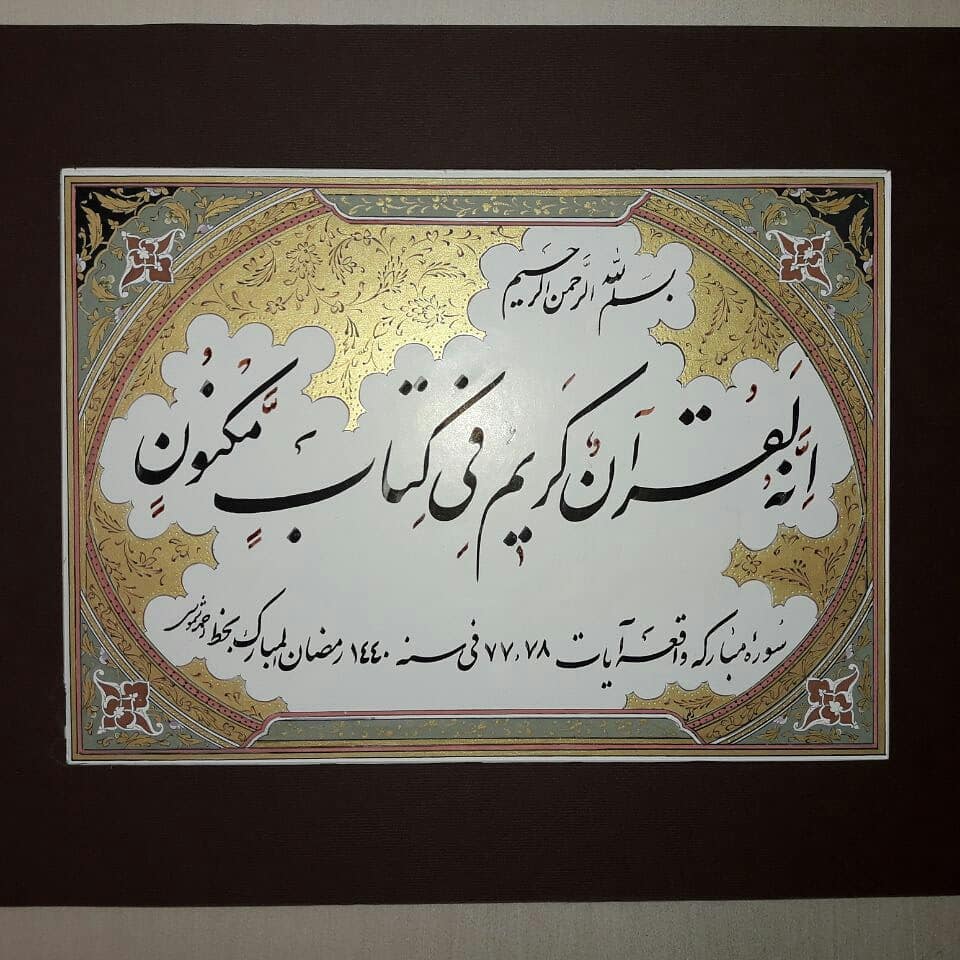 بسم الله الرحمن الرحيم
اِنَّهُ لَقُرآنٌ كَريمٌ فِي كِتابٍ مَّكْنُونٍ
سورهٔ مبارکه واقعه آیات ۷۷،۷۸ فی سنه ۱٤٤۰ رمضان المبارک بخط